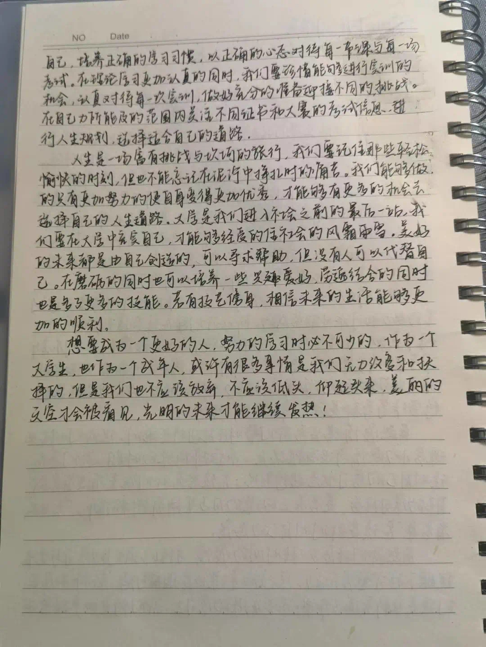 NO Date
自己，培养正确的学习习惯，以正确的心态对待每一节课与每一场
考试。在理论学习更加认真的同时，我们要珍惜能够进行实训的
机会，认真对待每一次实训，做好充分的准备迎接不同的挑战。
在自己力所能及的范围内关注不同证书和大赛的考试信息，进
行人生规划，选择适合自己的道路。
人生是一场富有挑战与坎坷的旅行，我们要记住那些轻松
愉快的时刻，但也不能忘记在泥泞中挣扎时的痛苦。我们能够做
的只有更加努力的使自身变得更加优秀，才能够有更多的机会去
选择自己的人生道路。大学是我们进入社会之前的最后一站，我
们要在大学中充实自己，才能够经度的住社会的风霜雨雪。美好
的未来都是由自己创造的，可以寻求帮助，但没有人可以代替自
己。在磨砺的同时也可以培养一些兴趣爱好，劳逸结合的同时
也是多了更多的技能。若有技在傍身，相信未来的生活能够更
加的顺利。
想要成为一个更好的人，努力的学习时必不可少的，作为一个
大学生，也作为一个成年人，或许有很多事情是我们无力改变和抉
择的，但是我们也不应该放弃，不应该低头，仰起头来，美丽的
天空才会被看见，光明的未来才能继续发热！